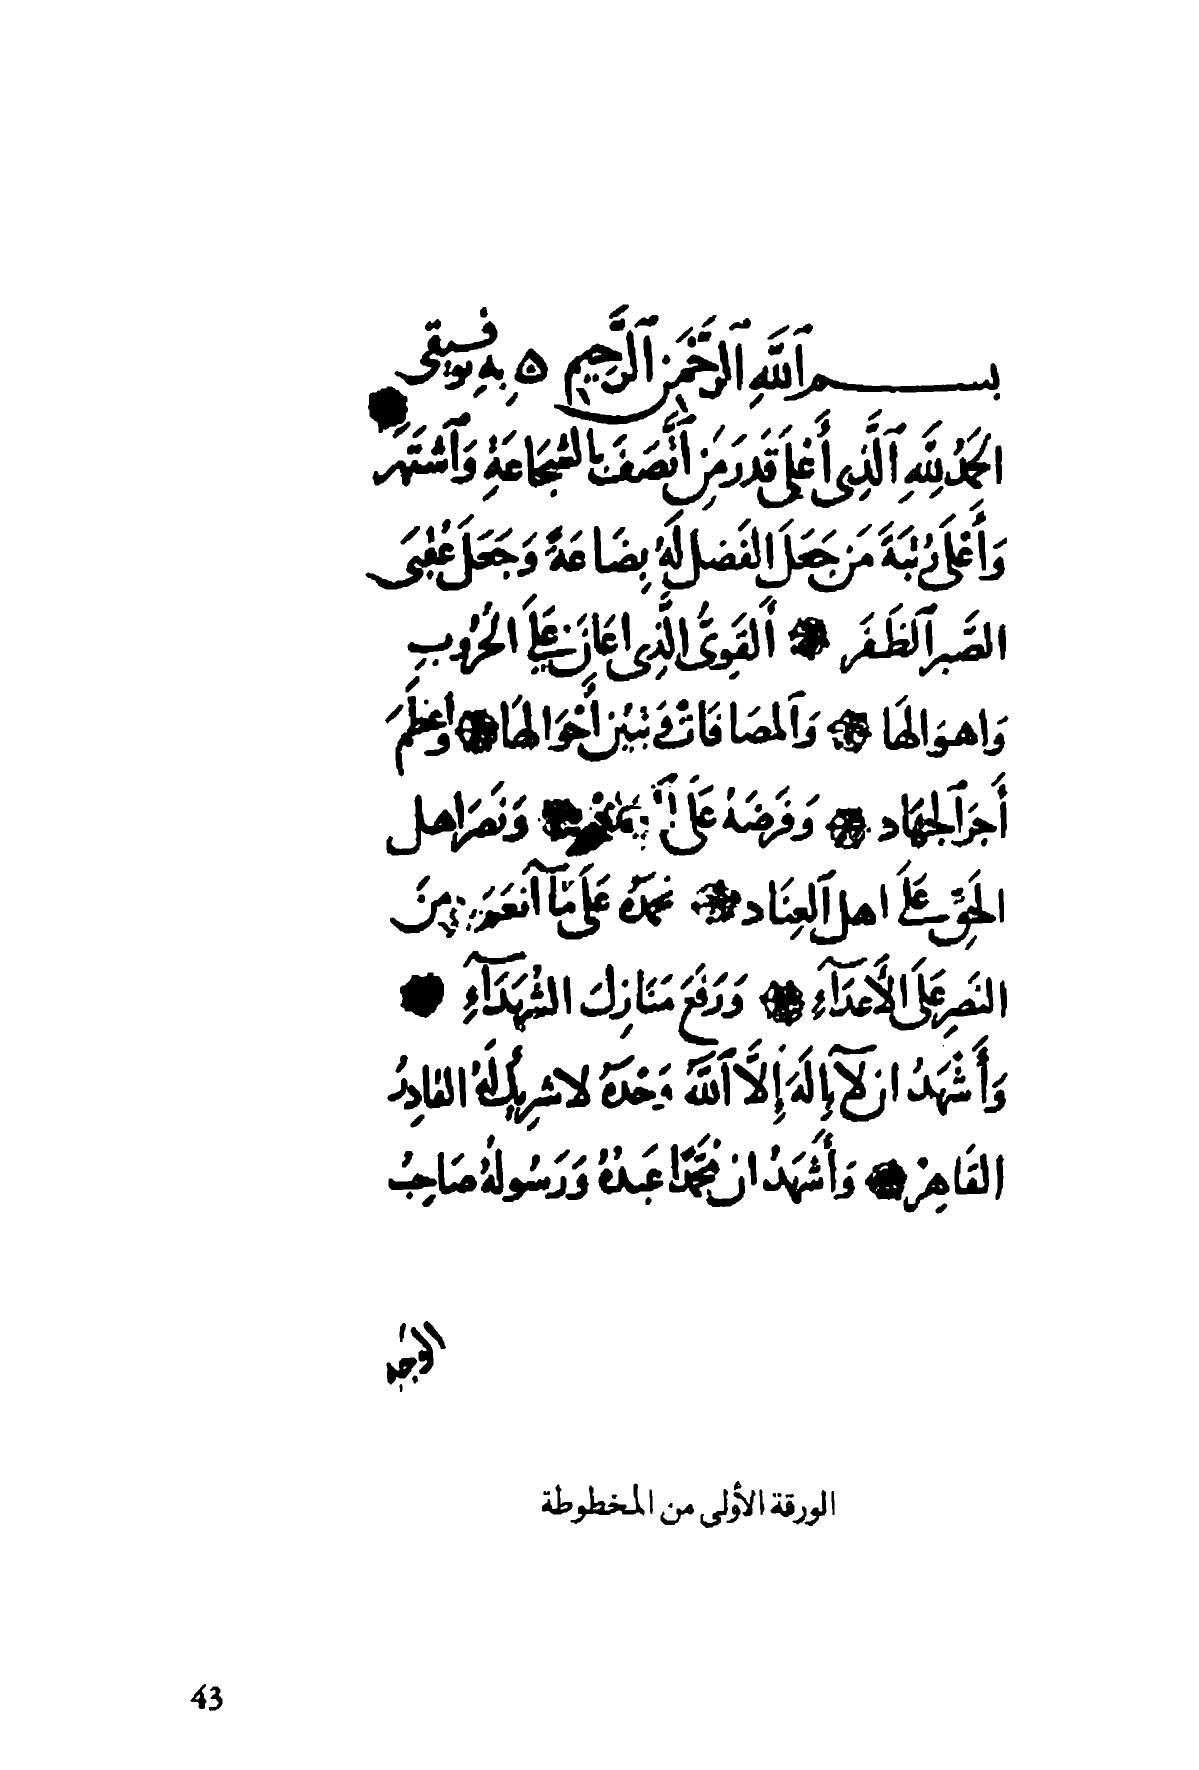 بســـــم ٱللَّهِ ٱلرَّحْمَنِ ٱلرَّحِيمِ ۵ بِهِ توفيقى
الحَمْدُ لِلَّهِ ٱلَّذِى أَعْلَى قَدرَ مَنِ ٱتَّصَفَ بِالشَّجَاعَةِ وَٱشْتَهَرَ
وَأَعْلَى رُتْبَةَ مَن جَعَلَ الفَضلَ لَهُ بِضَاعَةً وَجَعَلَ عُقْبَى
الصَّبرِ ٱلظَفَرَ ۞ أَلقَوِىُّ الَّذِى اعَانَ عَلَى الحُرُوبِ
وَاهوَالهَا ۞ وَٱلمصَافَاتِ وَتَبَيُّنِ أَحْوَالهَا ۞ وَاعظَمَ
أَجرَ ٱلجِهَاد ۞ وَفَرَضَهُ عَلَى ۞ وَنَصَرَ اهل
الحَقِّ عَلَى اهل ٱلعِنَاد ۞ نحمَدُهُ عَلَى مَآ أَنعَمَ مِنَ
النَصرِ عَلَى الأَعدَآءِ ۞ وَرَفَعَ مَنَازِلَ الشُهَدَآءِ ۞
وَأَشْهَدُ ان لآ إِلَهَ إِلَّا ٱللَّهُ وَحْدَهُ لا شرِيكَ لَهُ القَادِرُ
القَاهِرُ ۞ وَأَشْهَدُ ان مُحَمَّدًا عَبدُهُ وَرَسُولُهُ صَاحِبُ
الورقة الأولى من المخطوطة
43